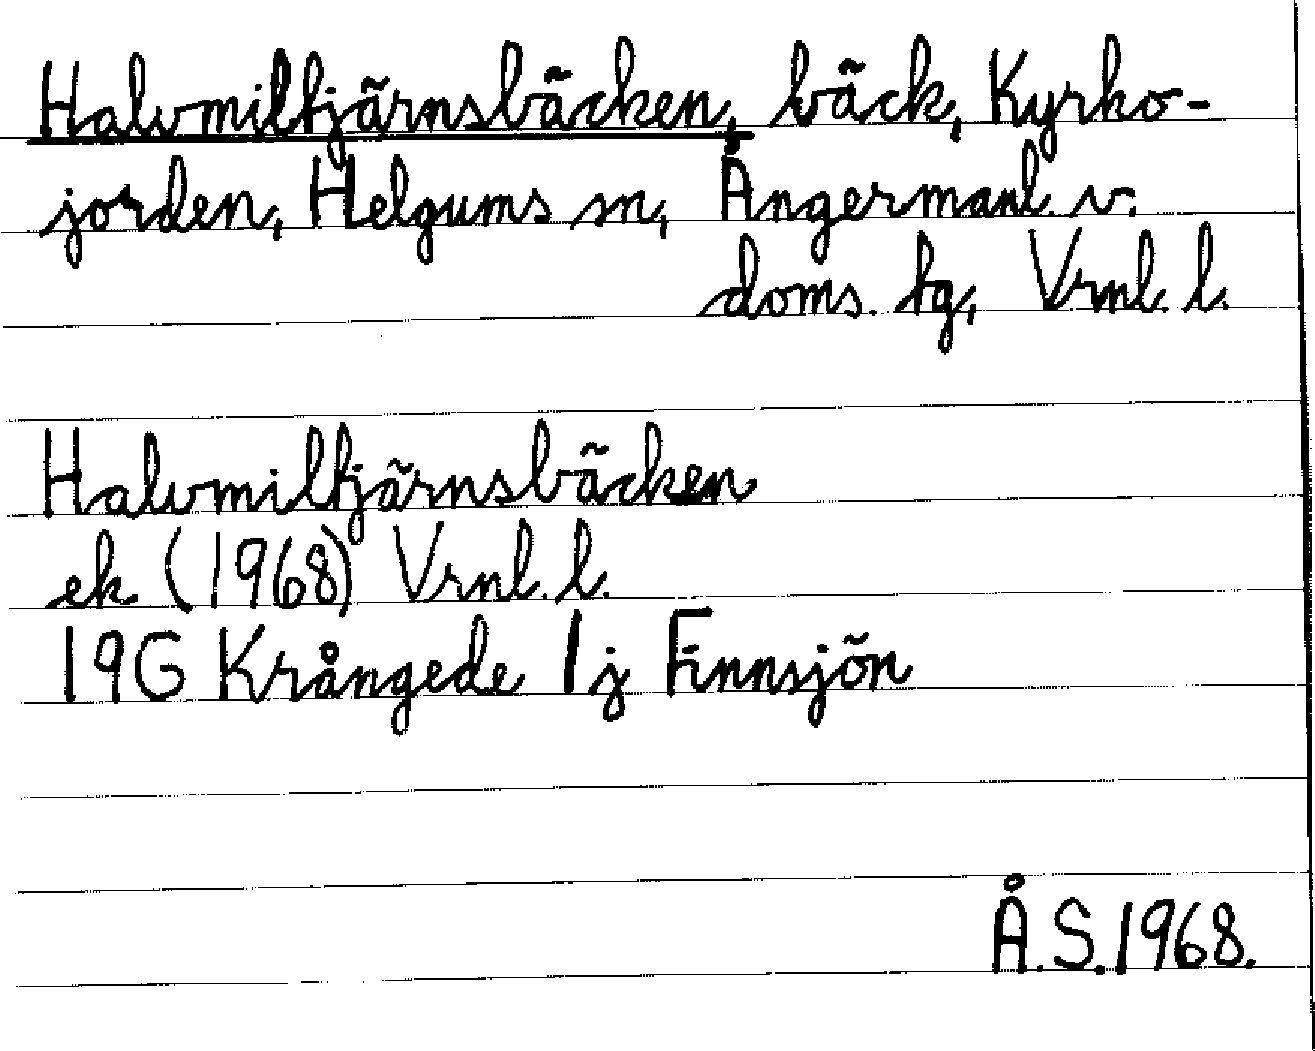 Halvmiltjärnsbäcken, bäck, Kyrko-
jorden, Helgums sn, Ångermanl. v.
doms. tg, Vrnl. l.
Halvmiltjärnsbäcken
ek (1968) Vrnl. l.
19G Krångede 1j Finnsjön
Å.S.1968.